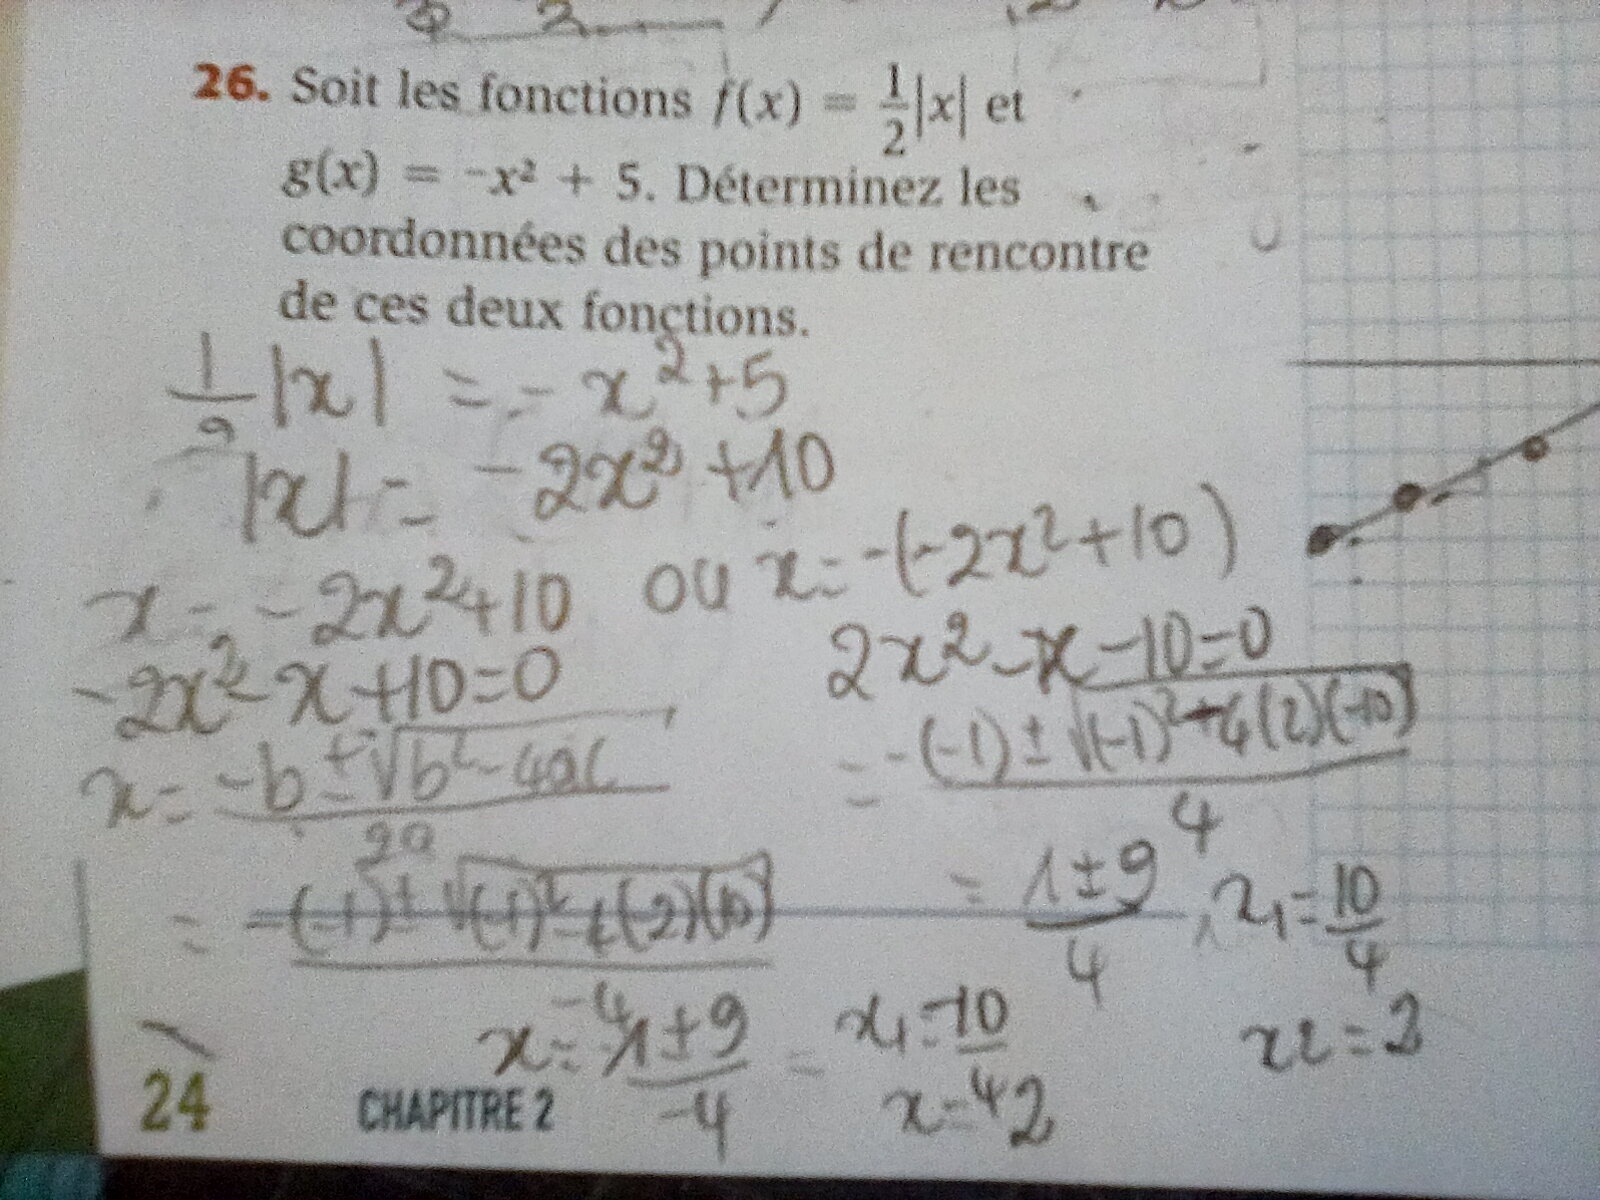 26. Soit les fonctions f(x) = 1/2|x| et
g(x) = -x² + 5. Déterminez les
coordonnées des points de rencontre
de ces deux fonctions.
1/2 |x| = - x² + 5
|x| = - 2x² + 10
x = - 2x² + 10 ou x = -(-2x² + 10)
-2x² - x + 10 = 0
2x² - x - 10 = 0
x = (-b ± √(b² - 4ac))/2a
= (-(-1) ± √((-1)² - 4(2)(-10)))/4
= (-(-1) ± √((-1)² - 4(-2)(10)))/-4
= (1 ± 9)/4, x1 = 10/4
x2 = 2
x = (1 ± 9)/-4 = x1 = -10/4
x = 2
24 CHAPITRE 2